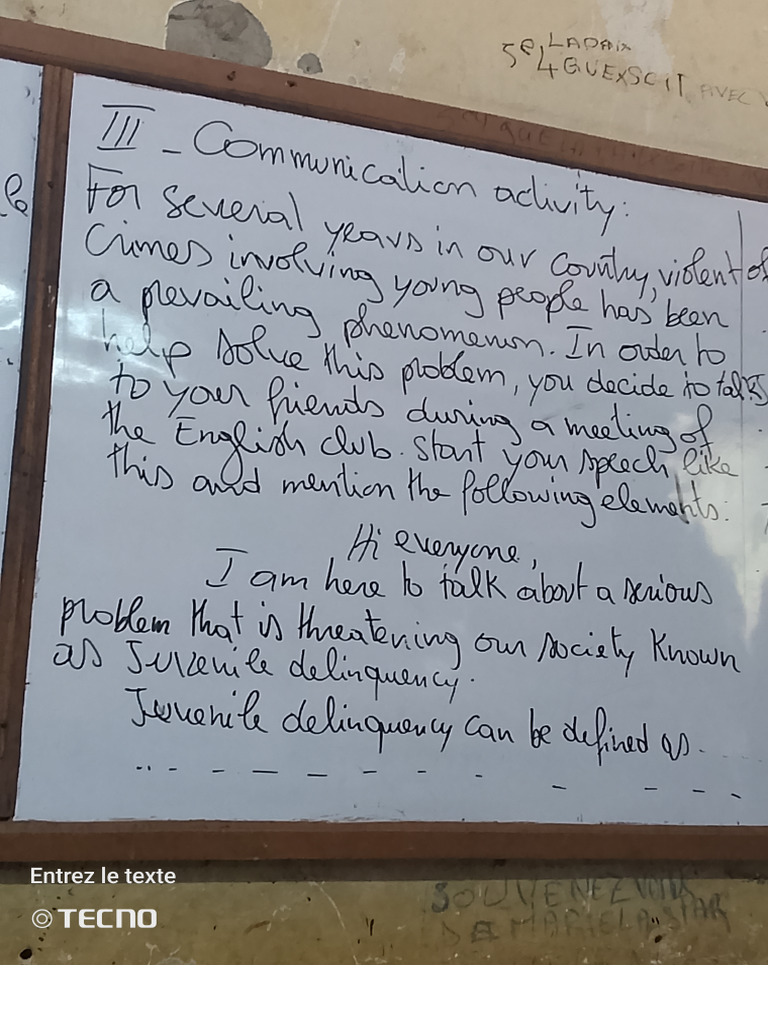 SE LADAIX
L4 GUEXSCIT AVEC
III - Communication activity:
For several years in our country, violent of
Crimes involving young people has been
a prevailing phenomenon. In order to
help solve this problem, you decide to talks
to your friends during a meeting of
the English club. Start your speech like
this and mention the following elements:
Hi everyone,
I am here to talk about a serious
problem that is threatening our society known
as Juvenile delinquency.
Juvenile delinquency can be defined as..
Entrez le texte
TECNO
SOUVENEZ VOUS
DE MARIELA STAR